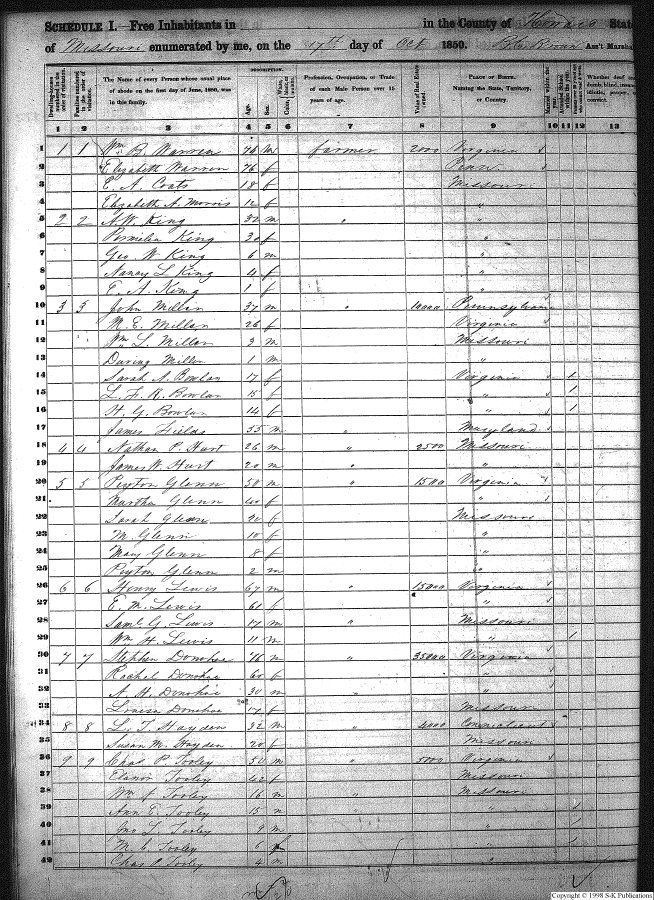 SCHEDULE I.—Free Inhabitants in in the County of State
of Missouri enumerated by me, on the 17th day of Oct 1850. Ass't Marshal
DESCRIPTION.
Dwelling-houses numbered in the order of visitation.
Families numbered in the order of visitation.
The Name of every Person whose usual place of abode on the first day of June, 1850, was in this family.
Age.
Sex.
Color,
Profession, Occupation, or Trade of each Male Person over 15 years of age.
Value of Real Estate owned.
PLACE OF BIRTH.
Naming the State, Territory, or Country.
Married within the year.
Attended School within the year.
Whether deaf
dumb, blind,
convict.
1 2 3 4 5 6 7 8 9 10 11 12 13
1 1 1 Wm B. Warren m farmer 2000 Virginia
2 Elizabeth Warren 76 f Penn.
3 E. A. Coats 18 f Missouri
4 Elizabeth A. Morris 12 f "
5 2 2 A. W. King 32 m " "
6 Permelia King 30 f "
7 Geo W. King 6 m "
8 Nancy L King 4 f "
9 E. A. King 1 f "
10 3 3 John Millan 37 m " 10000 Pennsylvania
11 M. E. Millan 26 f Virginia
12 Wm L. Millan 3 m Missouri
13 Millan 1 m "
14 Sarah A. Bowlan 17 f Virginia 1
15 L. F. R. Bowlan 15 f " 1
16 H. G. Bowlan 14 f " 1
17 James Fields 35 m " Maryland
18 4 4 Nathan P. Hurt 26 m " 2500 Missouri
19 James W. Hurt 20 m " "
20 5 5 Peyton Glenn 50 m " 1500 Virginia
21 Martha Glenn 40 f "
22 Sarah Glenn 20 f Missouri
23 M. Glenn 10 f "
24 Mary Glenn 8 f "
25 Peyton Glenn 2 m "
26 6 6 Henry Lewis 67 m " 15000 Virginia
27 E. M. Lewis 61 f "
28 Saml G. Lewis 17 m " Missouri
29 Wm H. Lewis 11 m " 1
30 7 7 Stephen Donohoe 76 m " 35000 Virginia
31 Rachel Donohoe 60 f "
32 A. H. Donohoe 30 m " "
33 Louisa Donohoe 17 f Missouri
34 8 8 L. T. Hayden 32 m " 4000 Connecticut
35 Susan M. Hayden 20 f Missouri
36 9 9 Chas P. Tooley 50 m " 5000 Virginia
37 Elanor Tooley 42 f Missouri
38 Wm f. Tooley 16 m " Missouri
39 Ann E. Tooley 15 " 1
40 Jno L Tooley 9 m " 1
41 M. C. Tooley 6 f " 1
42 Chas P Tooley 4 m "
Copyright © 1998 S-K Publications